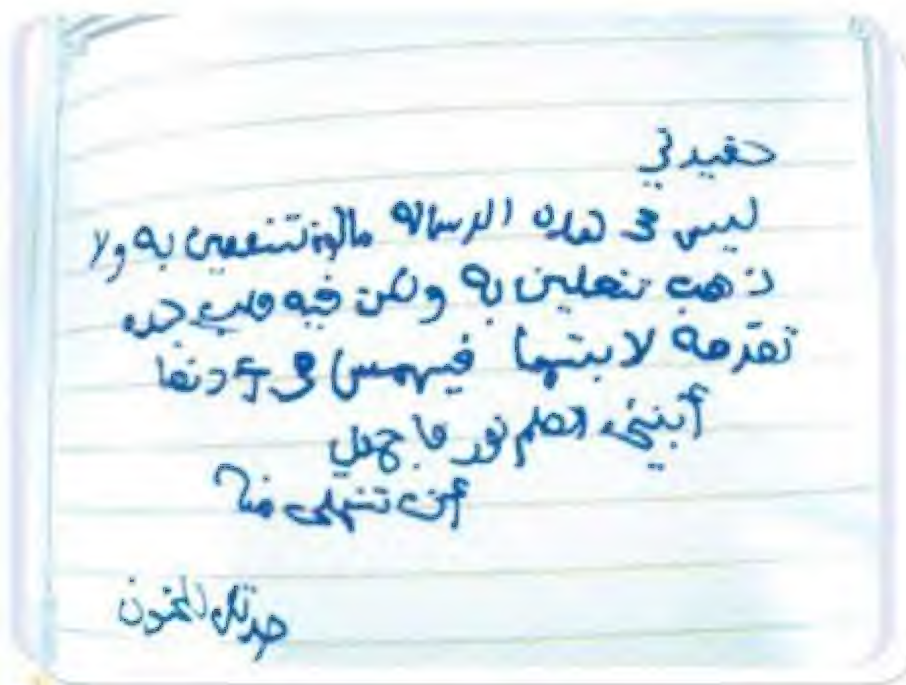 حفيدتي
ليس في هذه الرسالة مالاً تنتفعين به ولا
ذهب تتحلين به ولكن فيه قلب جده
تقدمه لابنتها فيهمس في أذنها
أبنيتي العلم نور فاجهدي
أن تنهلي منه
جدتك الحنون